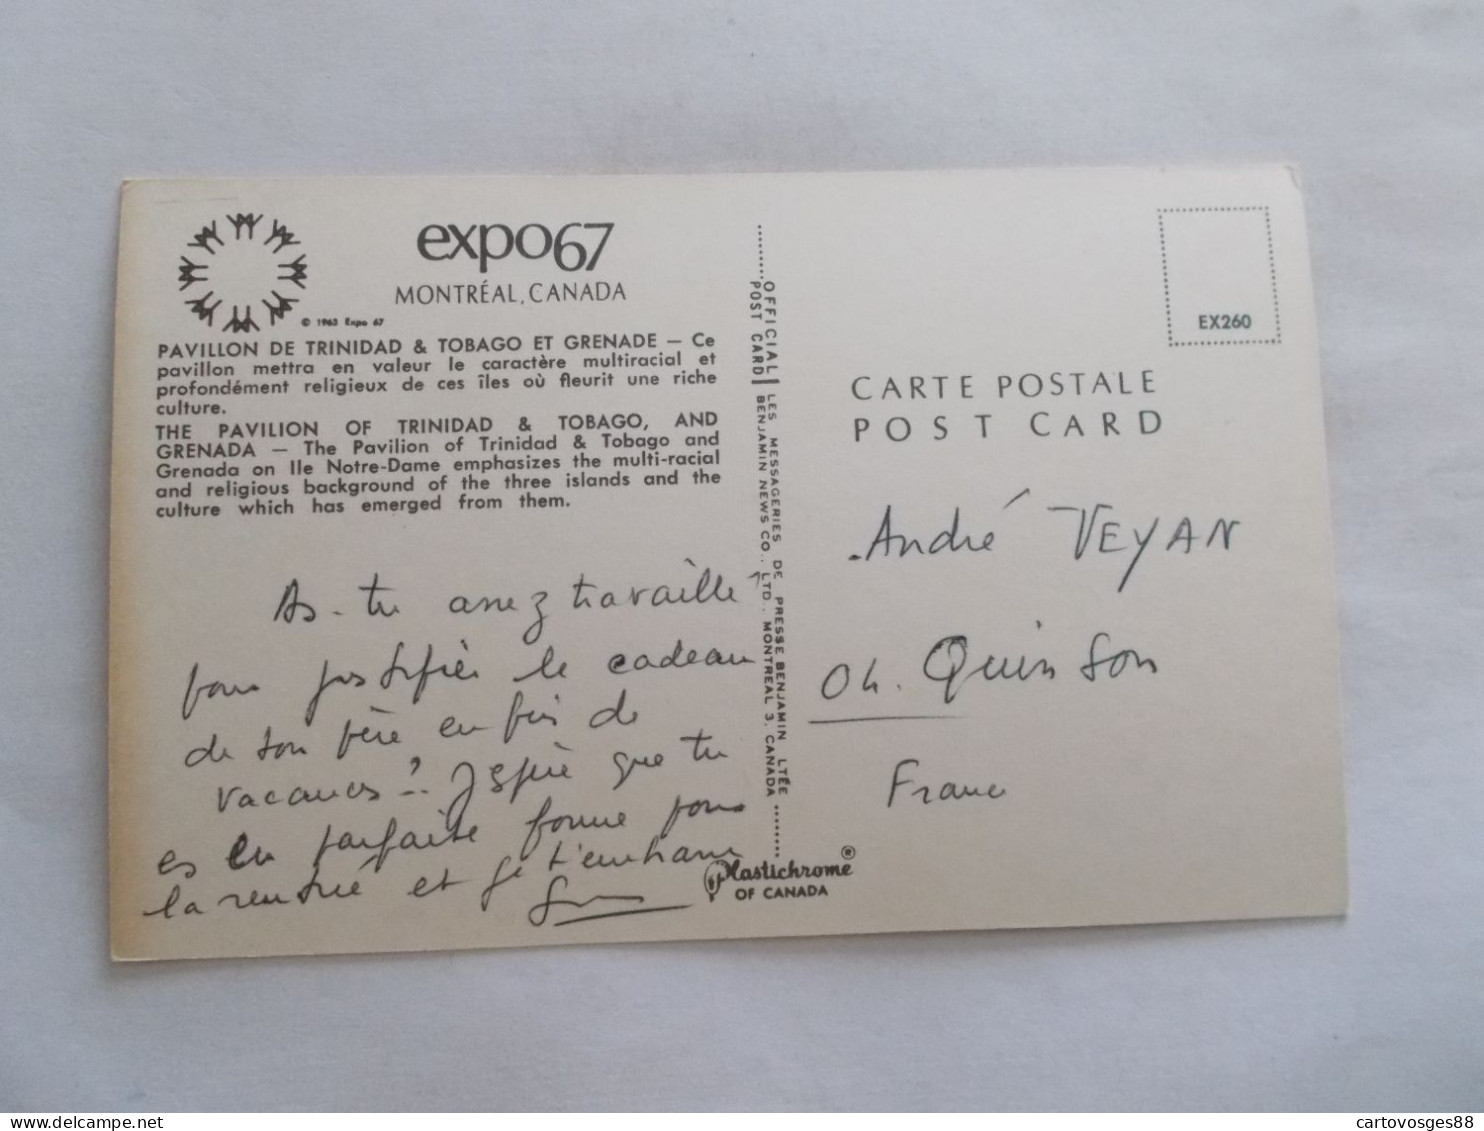 expo67
MONTRÉAL, CANADA
© 1963 Expo 67
PAVILLON DE TRINIDAD & TOBAGO ET GRENADE — Ce
pavillon mettra en valeur le caractère multiracial et
profondément religieux de ces îles où fleurit une riche
culture.
THE PAVILION OF TRINIDAD & TOBAGO, AND
GRENADA — The Pavilion of Trinidad & Tobago and
Grenada on Ile Notre-Dame emphasizes the multi-racial
and religious background of the three islands and the
culture which has emerged from them.
As-tu assez travaillé
pour justifier le cadeau
de ton père en fin de
vacances ? J'espère que tu
es en parfaite forme pour
la rentrée et je t'embrasse
OFFICIAL
POST CARD
LES MESSAGERIES DE PRESSE BENJAMIN LTÉE
BENJAMIN NEWS CO., LTD., MONTREAL 3, CANADA
Plastichrome®
OF CANADA
EX260
CARTE POSTALE
POST CARD
André VEYAN
04. Quinson
France
cartovosges88